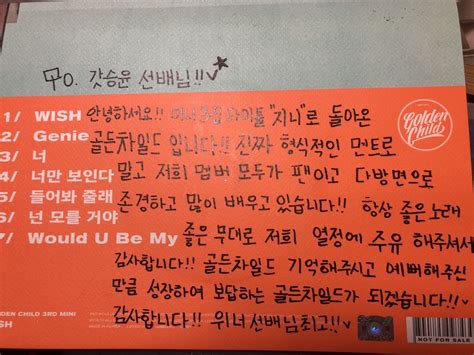 To. 갓승윤 선배님!!☆
Golden Child
1/ WISH
2/ Genie
3/ 너
4/ 너만 보인다
5/ 들어봐 줄래
6/ 넌 모를 거야
7/ Would U Be My
안녕하세요!! 미니3집 타이틀 "지니"로 돌아온
골든차일드 입니다!! 진짜 형식적인 멘트로
말고 저희 멤버 모두가 팬이고 다방면으로
존경하고 많이 배우고 있습니다!! 항상 좋은 노래
좋은 무대로 저희 열정에 주유 해주셔서
감사합니다!! 골든차일드 기억해주시고 예뻐해주신
만큼 성장하여 보답하는 골든차일드가 되겠습니다!!
감사합니다!! 위너 선배님 최고!!
DEN CHILD 3RD MINI
SH
NOT FOR SALE